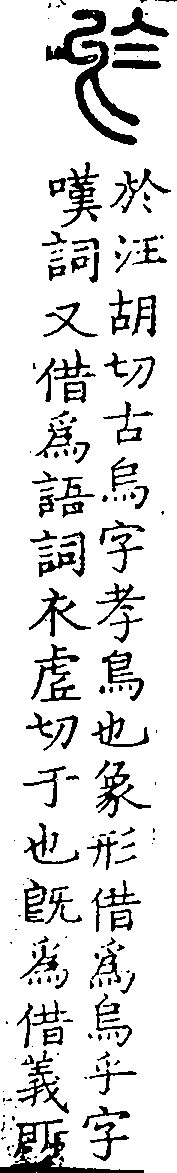 於汪胡切古烏字孝鳥也象形借爲烏乎字
嘆詞又借爲語詞衣虛切于也旣爲借義